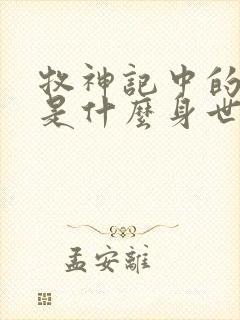 牧神記中的
是什麼身世
孟安離